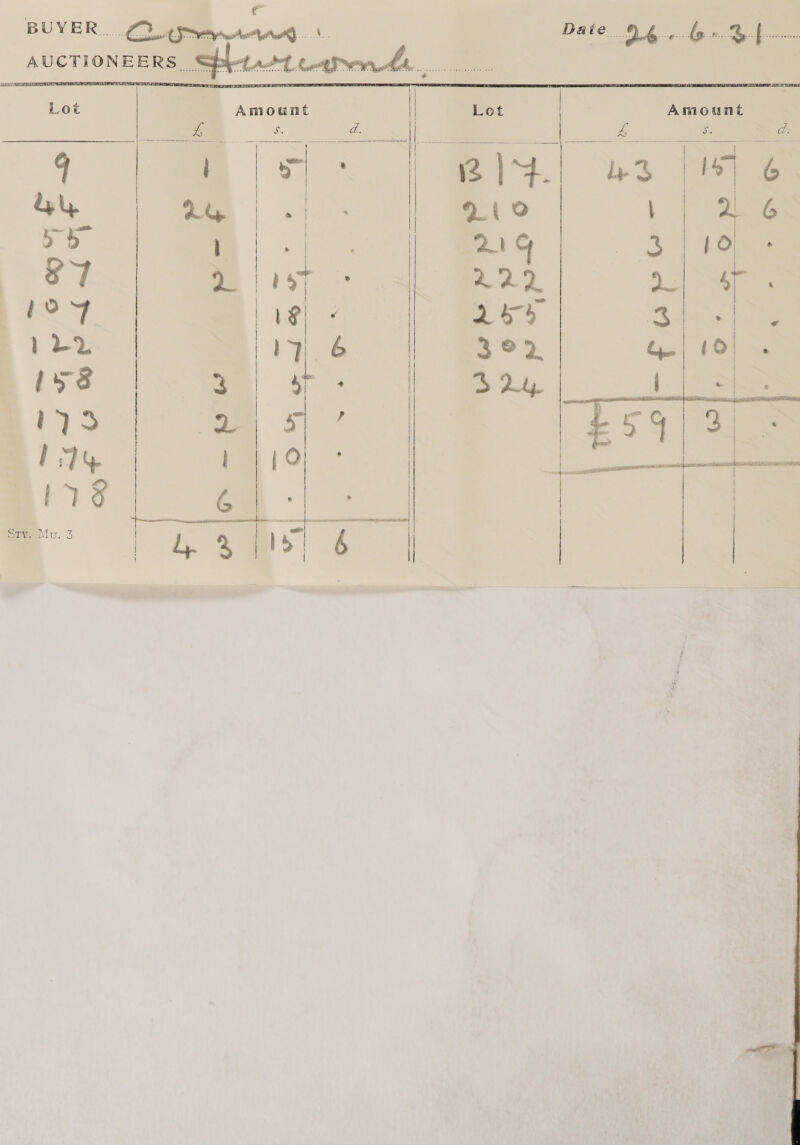 BUYER Comins.
Date 26.6.31
AUCTIONEERS Hurcomb.
Lot Amount
£ s. d.
9 1 5 .
44 24 . .
55 1 . .
87 2 15 .
107 18 .
122 17 6
158 3 5 .
173 2 5 .
174 1 10 .
178 6 . .
43 15 6
Lot Amount
£ s. d.
B/F. 43 15 6
210 1 2 6
219 3 10 .
222 2 5 .
255 3 . .
302 4 10 .
324 1 . .
£59 3 .
STY. MU. 3